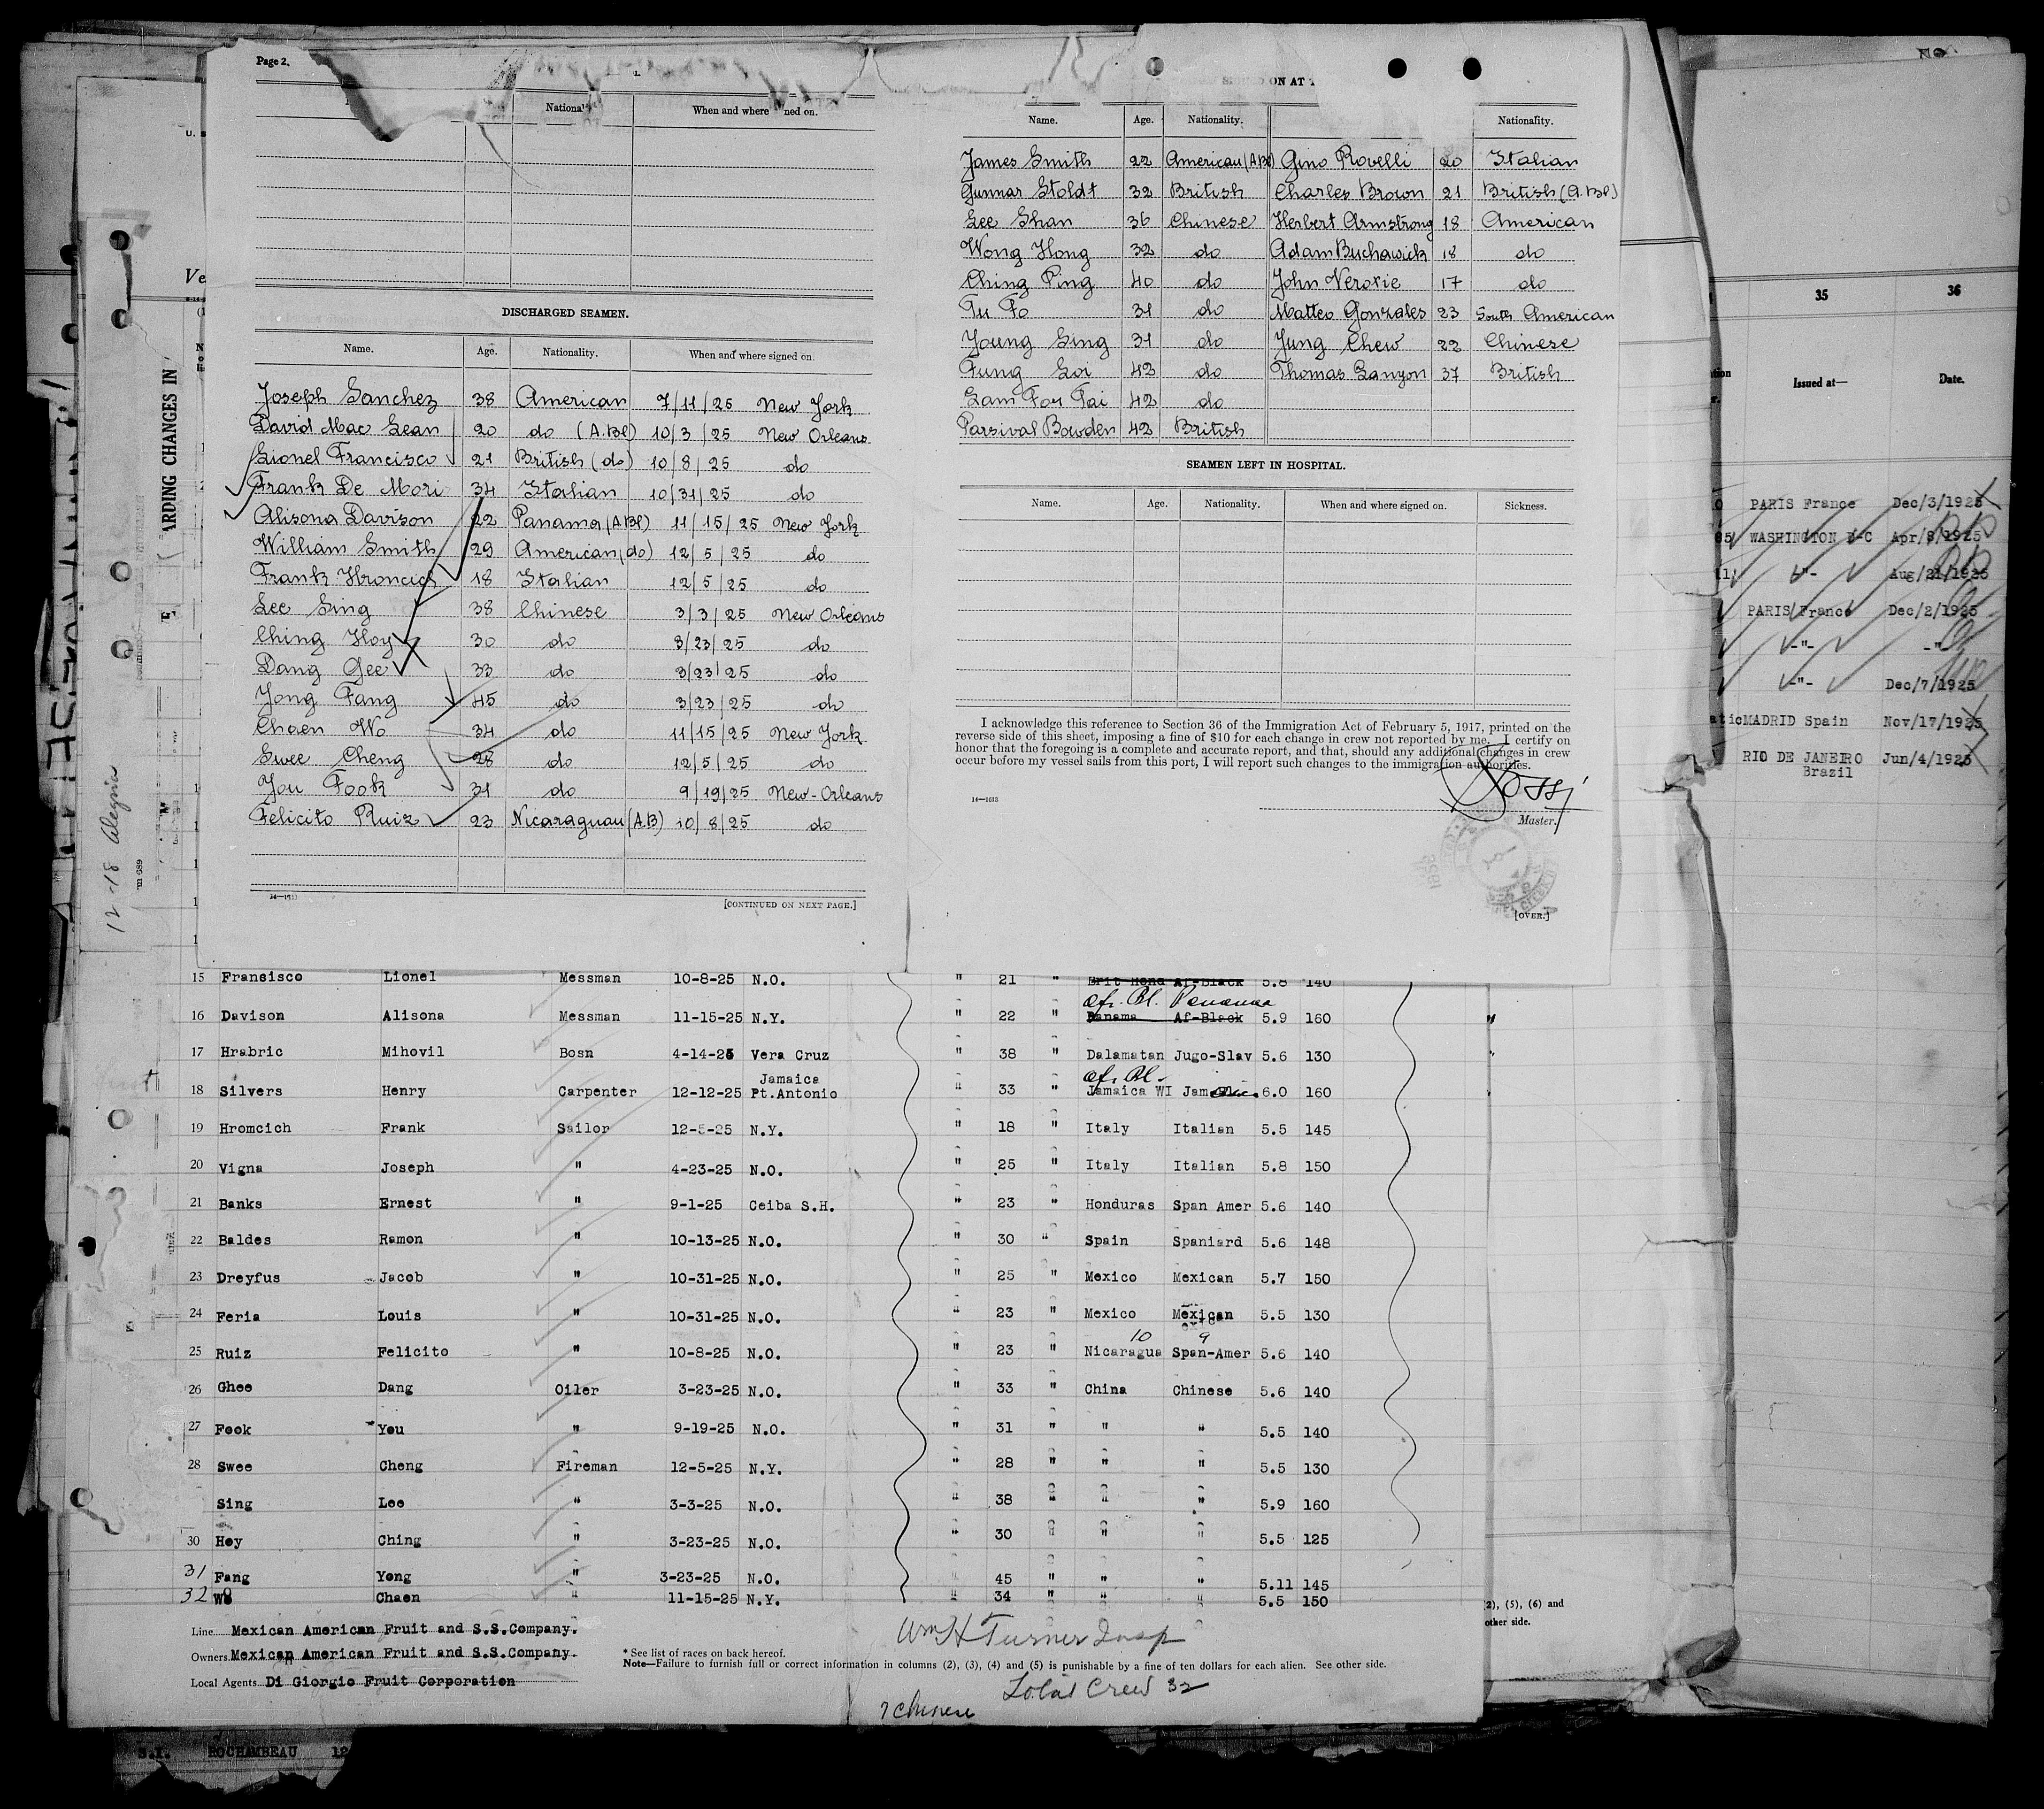 Page 2.
When and where ned on.
DISCHARGED SEAMEN.
Name. Age. Nationality. When and where signed on.
Joseph Sanchez 38 American 7/11/25 New York
David Mac Lean 20 do (A.Bl) 10/3/25 New Orleans
Lionel Francisco 21 British (do) 10/8/25 do
Frank De Mori 34 Italian 10/31/25 do
Alisona Davison 22 Panama (A.Bl) 11/15/25 New York
William Smith 29 American (do) 12/5/25 do
Frank Hroncich 18 Italian 12/5/25 do
Lee Sing 38 Chinese 3/3/25 New Orleans
Ching Hoy 30 do 3/23/25 do
Dang Gee 33 do 3/23/25 do
Yong Fang 45 do 3/23/25 do
Chaen Wo 34 do 11/15/25 New York
Swee Cheng 28 do 12/5/25 do
You Fook 31 do 9/19/25 New-Orleans
Felicito Ruiz 23 Nicaraguan (A.B) 10/8/25 do
[CONTINUED ON NEXT PAGE.]
ON AT
Name. Age. Nationality. Nationality.
James Smith 22 American (A.Bl) Gino Rovelli 20 Italian
Gunnar Stoldt 32 British Charles Brown 21 British (A.Bl)
Lee Shan 36 Chinese Herbert Armstrong 18 American
Wong Hong 32 do Adam Buchawick 18 do
Ching Ping 40 do John Veroxie 17 do
Fu Fo 31 do Matteo Gonzales 23 South American
Young Sing 31 do Jung Chew 22 Chinese
Fung Loi 42 do Thomas Lanyon 37 British
Lam Fou Tai 42 do
Parsival Bowden 42 British
SEAMEN LEFT IN HOSPITAL.
Name. Age. Nationality. When and where signed on. Sickness.
I acknowledge this reference to Section 36 of the Immigration Act of February 5, 1917, printed on the
reverse side of this sheet, imposing a fine of $10 for each change in crew not reported by me. I certify on
honor that the foregoing is a complete and accurate report, and that, should any additional changes in crew
occur before my vessel sails from this port, I will report such changes to the immigration authorities.
14—1613
Master.
[OVER.]
ARDING CHANGES IN
12-18 Alegria
35 36
Issued at— Date.
PARIS France Dec/3/1925
WASHINGTON D-C Apr/8/1925
-"- Aug/21/1925
PARIS France Dec/2/1925
-"- -"-
-"- Dec/7/1925
MADRID Spain Nov/17/1925
RIO DE JANEIRO Jun/4/1925
Brazil
15 Fransisco Lionel Messman 10-8-25 N.O. " 21 " Brit Hond Af-Black 5.8 140
Af. Bl. Panama
16 Davison Alisona Messman 11-15-25 N.Y. " 22 " Panama Af-Black 5.9 160
17 Hrabric Mihovil Bosn 4-14-25 Vera Cruz " 38 " Dalamatan Jugo-Slav 5.6 130
Jamaica Af. Bl.
18 Silvers Henry Carpenter 12-12-25 Pt.Antonio " 33 " Jamaica WI 6.0 160
19 Hromcich Frank Sailor 12-5-25 N.Y. " 18 " Italy Italian 5.5 145
20 Vigna Joseph " 4-23-25 N.O. " 25 " Italy Italian 5.8 150
21 Banks Ernest " 9-1-25 Ceiba S.H. " 23 " Honduras Span Amer 5.6 140
22 Baldes Ramon " 10-13-25 N.O. " 30 " Spain Spaniard 5.6 148
23 Dreyfus Jacob " 10-31-25 N.O. " 25 " Mexico Mexican 5.7 150
24 Feria Louis " 10-31-25 N.O. " 23 " Mexico Mexican 5.5 130
10 9
25 Ruiz Felicito " 10-8-25 N.O. " 23 " Nicaragua Span-Amer 5.6 140
26 Ghee Dang Oiler 3-23-25 N.O. " 33 " China Chinese 5.6 140
27 Fook You " 9-19-25 N.O. " 31 " " " 5.5 140
28 Swee Cheng Fireman 12-5-25 N.Y. " 28 " " " 5.5 130
Sing Lee " 3-3-25 N.O. " 38 " " " 5.9 160
30 Hoy Ching " 3-23-25 N.O. " 30 " " " 5.5 125
31 Fang Yong " 3-23-25 N.O. " 45 " " " 5.11 145
32 Wo Chaen " 11-15-25 N.Y. " 34 " " " 5.5 150
(2), (5), (6) and
other side.
Line Mexican American Fruit and S.S.Company.
Owners Mexican American Fruit and S.S.Company.
Local Agents Di Giorgio Fruit Corporation
Wm H Turner Insp
* See list of races on back hereof.
Note—Failure to furnish full or correct information in columns (2), (3), (4) and (5) is punishable by a fine of ten dollars for each alien. See other side.
Total Crew 32
7 Chinese
S.Y. ROCHAMBEAU 12